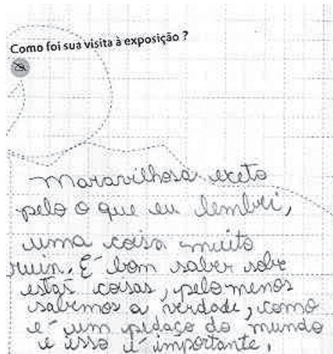 Como foi sua visita à exposição ?
Maravilhosa exeto
pelo o que eu lembrei,
uma coisa muito
ruin. É bom saber sobre
estas coisas, pelo menos
sabemos a verdade, como
é um pedaço do mundo
e isso é importante.